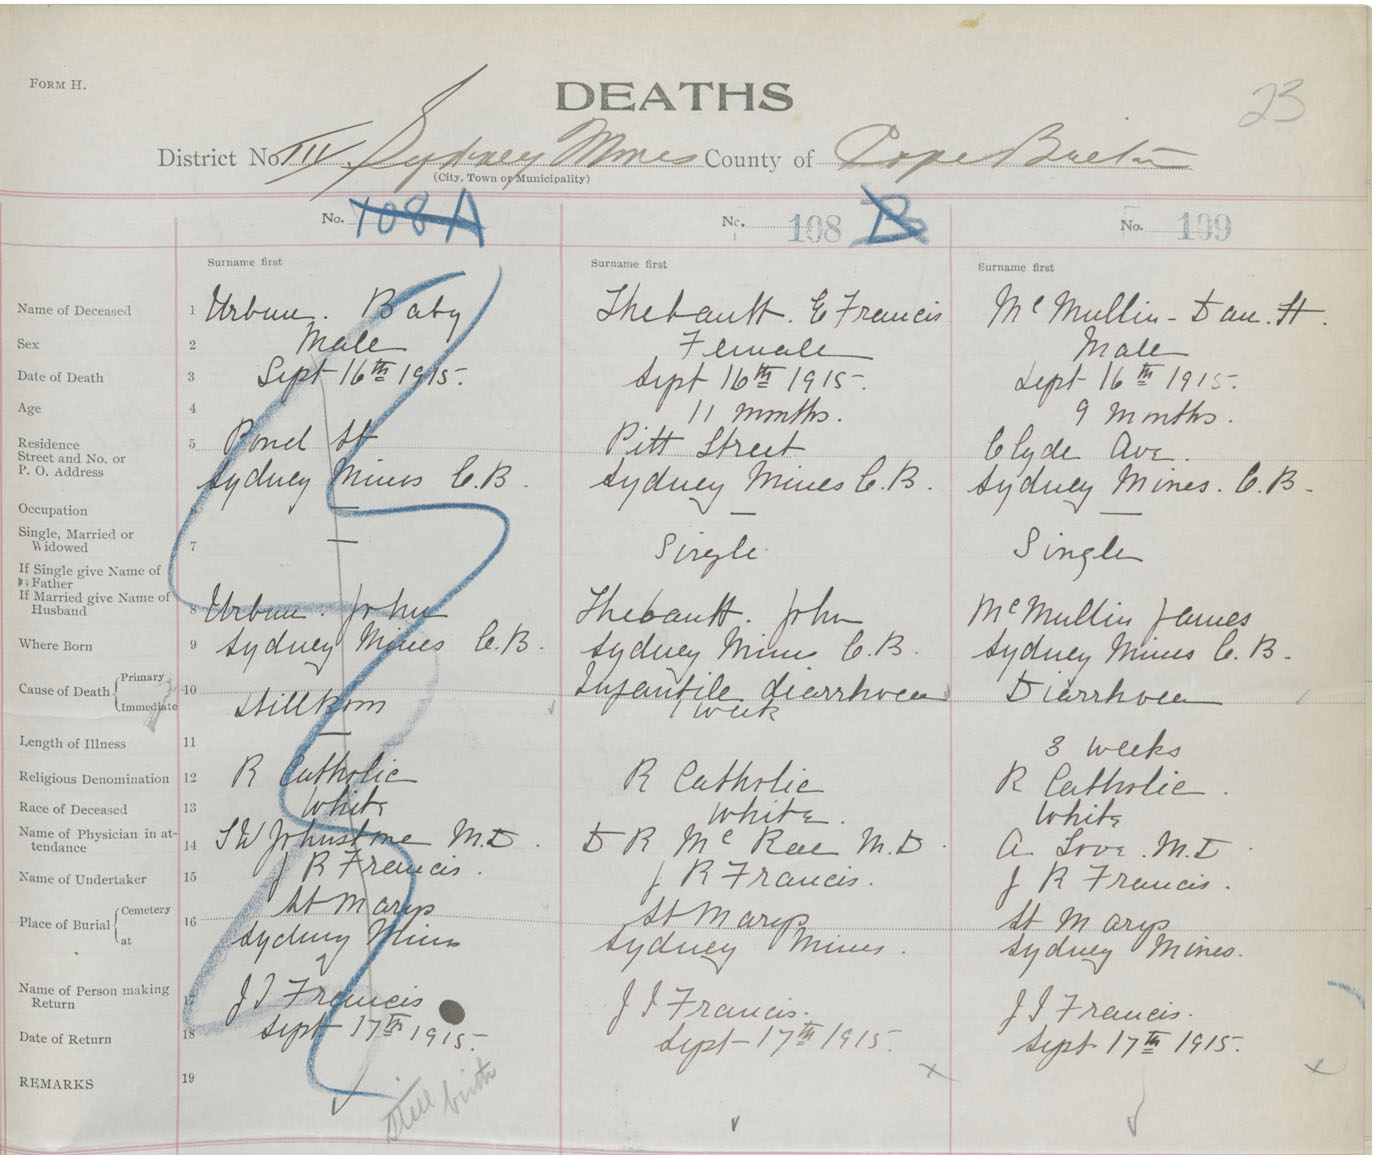 FORM H.
DEATHS
23
District No. III, Sydney Mines County of Cape Breton
(City, Town or Municipality)
No. 108 A
No. 108 B
No. 109
Surname first
Surname first
Surname first
Name of Deceased 1 Urban. Baby Thebault. E Francis McMullin - Dan. H.
Sex 2 Male Female Male
Date of Death 3 Sept 16th 1915. Sept 16th 1915. Sept 16th 1915.
Age 4 11 months. 9 months.
Residence 5 Bond St Pitt Street Clyde Ave.
Street and No. or
P. O. Address Sydney Mines C.B. Sydney Mines C.B. Sydney Mines. C.B.
Occupation 6 — — —
Single, Married or
Widowed 7 — Single Single
If Single give Name of
Father
If Married give Name of
Husband 8 Urban. John Thebault. John McMullin James
Where Born 9 Sydney Mines C.B. Sydney Mines C.B. Sydney Mines C.B.
Cause of Death Primary 10 Infantile diarrhoea Diarrhoea
Immediate Stillborn 1 week
Length of Illness 11 — 3 weeks
Religious Denomination 12 R Catholic R Catholic R Catholic.
Race of Deceased 13 White White. White
Name of Physician in at-
tendance 14 Johnstone M.D. D R McRae M.D. A Love. M.D.
Name of Undertaker 15 J R Francis. J R Francis. J R Francis.
Place of Burial Cemetery 16 St Marys St Marys St Marys
at Sydney Mines Sydney Mines. Sydney Mines.
Name of Person making
Return 17 J J Francis J J Francis. J J Francis.
Date of Return 18 Sept 17th 1915. Sept 17th 1915. Sept 17th 1915.
REMARKS 19
Still birth